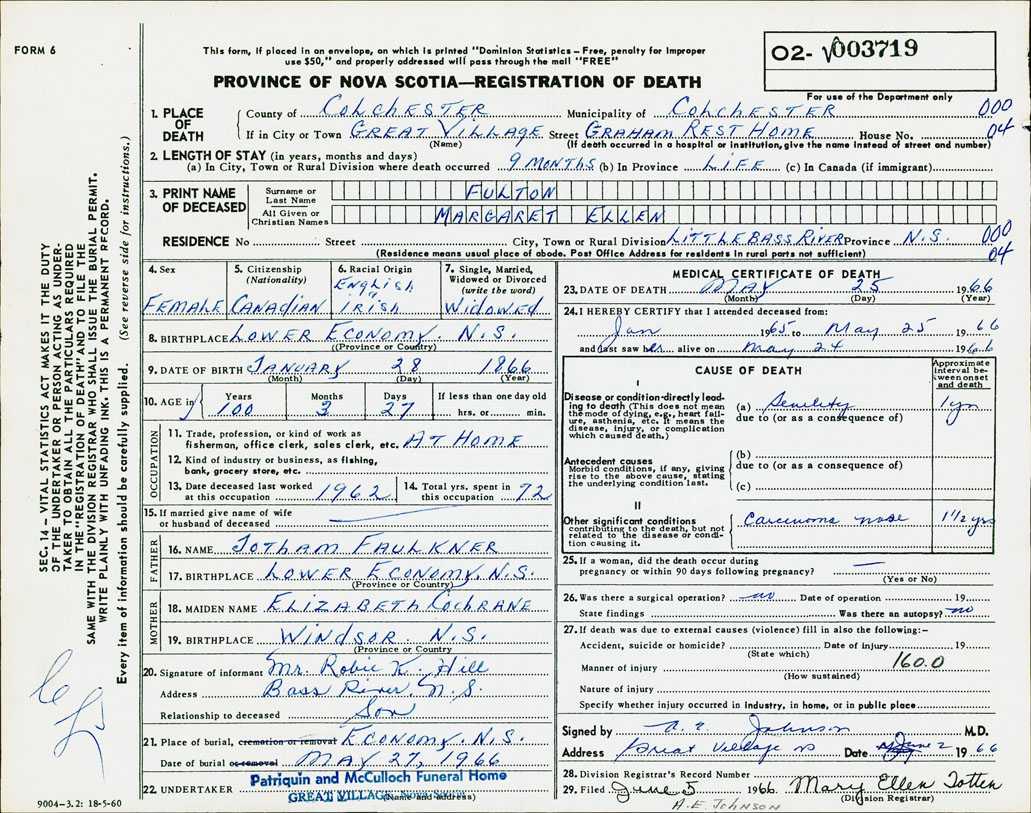 FORM 6
This form, if placed in an envelope, on which is printed "Dominion Statistics – Free, penalty for improper
use $50," and properly addressed will pass through the mail "FREE"
02- 003719
For use of the Department only
PROVINCE OF NOVA SCOTIA—REGISTRATION OF DEATH
1. PLACE OF DEATH County of COLCHESTER Municipality of COLCHESTER 000
If in City or Town GREAT VILLAGE Street GRAHAM REST HOME House No. 04
(Name) (If death occurred in a hospital or institution, give the name instead of street and number)
2. LENGTH OF STAY (in years, months and days)
(a) In City, Town or Rural Division where death occurred 9 MONTHS (b) In Province LIFE (c) In Canada (if immigrant)
3. PRINT NAME OF DECEASED Surname or Last Name FULTON
All Given or Christian Names MARGARET ELLEN
RESIDENCE No Street City, Town or Rural Division LITTLE BASS RIVER Province N.S. 000
(Residence means usual place of abode. Post Office Address for residents in rural parts not sufficient) 04
4. Sex FEMALE
5. Citizenship (Nationality) CANADIAN
6. Racial Origin ENGLISH " IRISH
7. Single, Married, Widowed or Divorced (write the word) WIDOWED
8. BIRTHPLACE LOWER ECONOMY, N.S.
(Province or Country)
9. DATE OF BIRTH JANUARY 28 1866
(Month) (Day) (Year)
10. AGE in Years 100 Months 3 Days 27 If less than one day old hrs. or min.
OCCUPATION
11. Trade, profession, or kind of work as
fisherman, office clerk, sales clerk, etc. AT HOME
12. Kind of industry or business, as fishing,
bank, grocery store, etc.
13. Date deceased last worked at this occupation 1962
14. Total yrs. spent in this occupation 72
15. If married give name of wife
or husband of deceased
FATHER
16. NAME JOTHAM FAULKNER
17. BIRTHPLACE LOWER ECONOMY, N.S.
(Province or Country)
MOTHER
18. MAIDEN NAME ELIZABETH COCHRANE
19. BIRTHPLACE WINDSOR. N.S.
(Province or Country)
20. Signature of informant Mr. Robie K. Hill
Address Bass River, N.S.
Relationship to deceased Son
21. Place of burial, cremation or removal ECONOMY, N.S.
Date of burial or removal MAY 27, 1966
22. UNDERTAKER Patriquin and McCulloch Funeral Home
GREAT VILLAGE, Nova Scotia
(Name and address)
MEDICAL CERTIFICATE OF DEATH
23. DATE OF DEATH MAY 25 1966
(Month) (Day) (Year)
24. I HEREBY CERTIFY that I attended deceased from:
Jan 1965 to May 25 1966
and last saw her alive on May 24 1966
CAUSE OF DEATH
Approximate interval between onset and death
I
Disease or condition directly leading to death (This does not mean the mode of dying, e.g., heart failure, asthenia, etc. It means the disease, injury, or complication which caused death.)
(a) Senility 1 yr
due to (or as a consequence of)
Antecedent causes
Morbid conditions, if any, giving rise to the above cause, stating the underlying condition last.
(b)
due to (or as a consequence of)
(c)
II
Other significant conditions
contributing to the death, but not related to the disease or condition causing it.
Carcinoma nose 1 1/2 yrs
25. If a woman, did the death occur during
pregnancy or within 90 days following pregnancy? —
(Yes or No)
26. Was there a surgical operation? no Date of operation 19
State findings Was there an autopsy? no
27. If death was due to external causes (violence) fill in also the following:–
Accident, suicide or homicide? Date of injury 19
(State which)
Manner of injury 160.0
(How sustained)
Nature of injury
Specify whether injury occurred in industry, in home, or in public place
Signed by A. E. Johnson M.D.
Address Great Village NS Date June 2 1966
28. Division Registrar's Record Number
29. Filed June 5 1966 Mary Ellen Totten
(Division Registrar)
A.E. JOHNSON
SEC. 14 – VITAL STATISTICS ACT MAKES IT THE DUTY
OF THE UNDERTAKER OR PERSON ACTING AS UNDER-
TAKER TO OBTAIN ALL THE PARTICULARS REQUIRED
IN THE "REGISTRATION OF DEATH" AND TO FILE THE
SAME WITH THE DIVISION REGISTRAR WHO SHALL ISSUE THE BURIAL PERMIT.
WRITE PLAINLY WITH UNFADING INK. THIS IS A PERMANENT RECORD.
Every item of information should be carefully supplied. (See reverse side for instructions.)
9004–3.2: 18-5-60